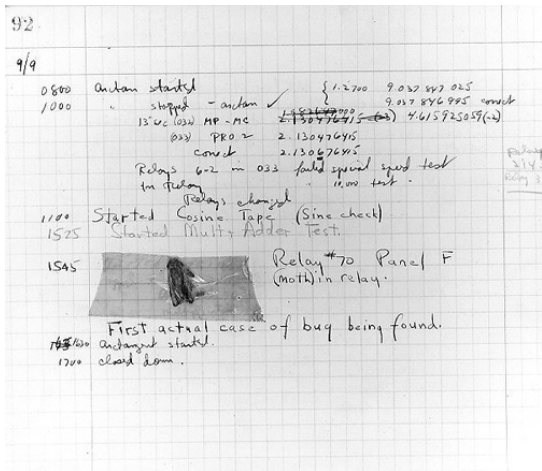 92
9/9
0800 Antan started { 1.2700 9.037 847 025
1000 " stopped - antan ✓ 9.037 846 995 correct
13"uc (032) MP - MC 2.130476415 4.615925059(-2)
(033) PRO 2 2.130476415
correct 2.130676415
Relays 6-2 in 033 failed special speed test
in Relay " 10,000 test.
Relays changed
1100 Started Cosine Tape (Sine check)
1525 Started Mult+Adder Test.
1545 Relay #70 Panel F
(moth) in relay.
First actual case of bug being found.
1630 antangent started.
1700 closed down.